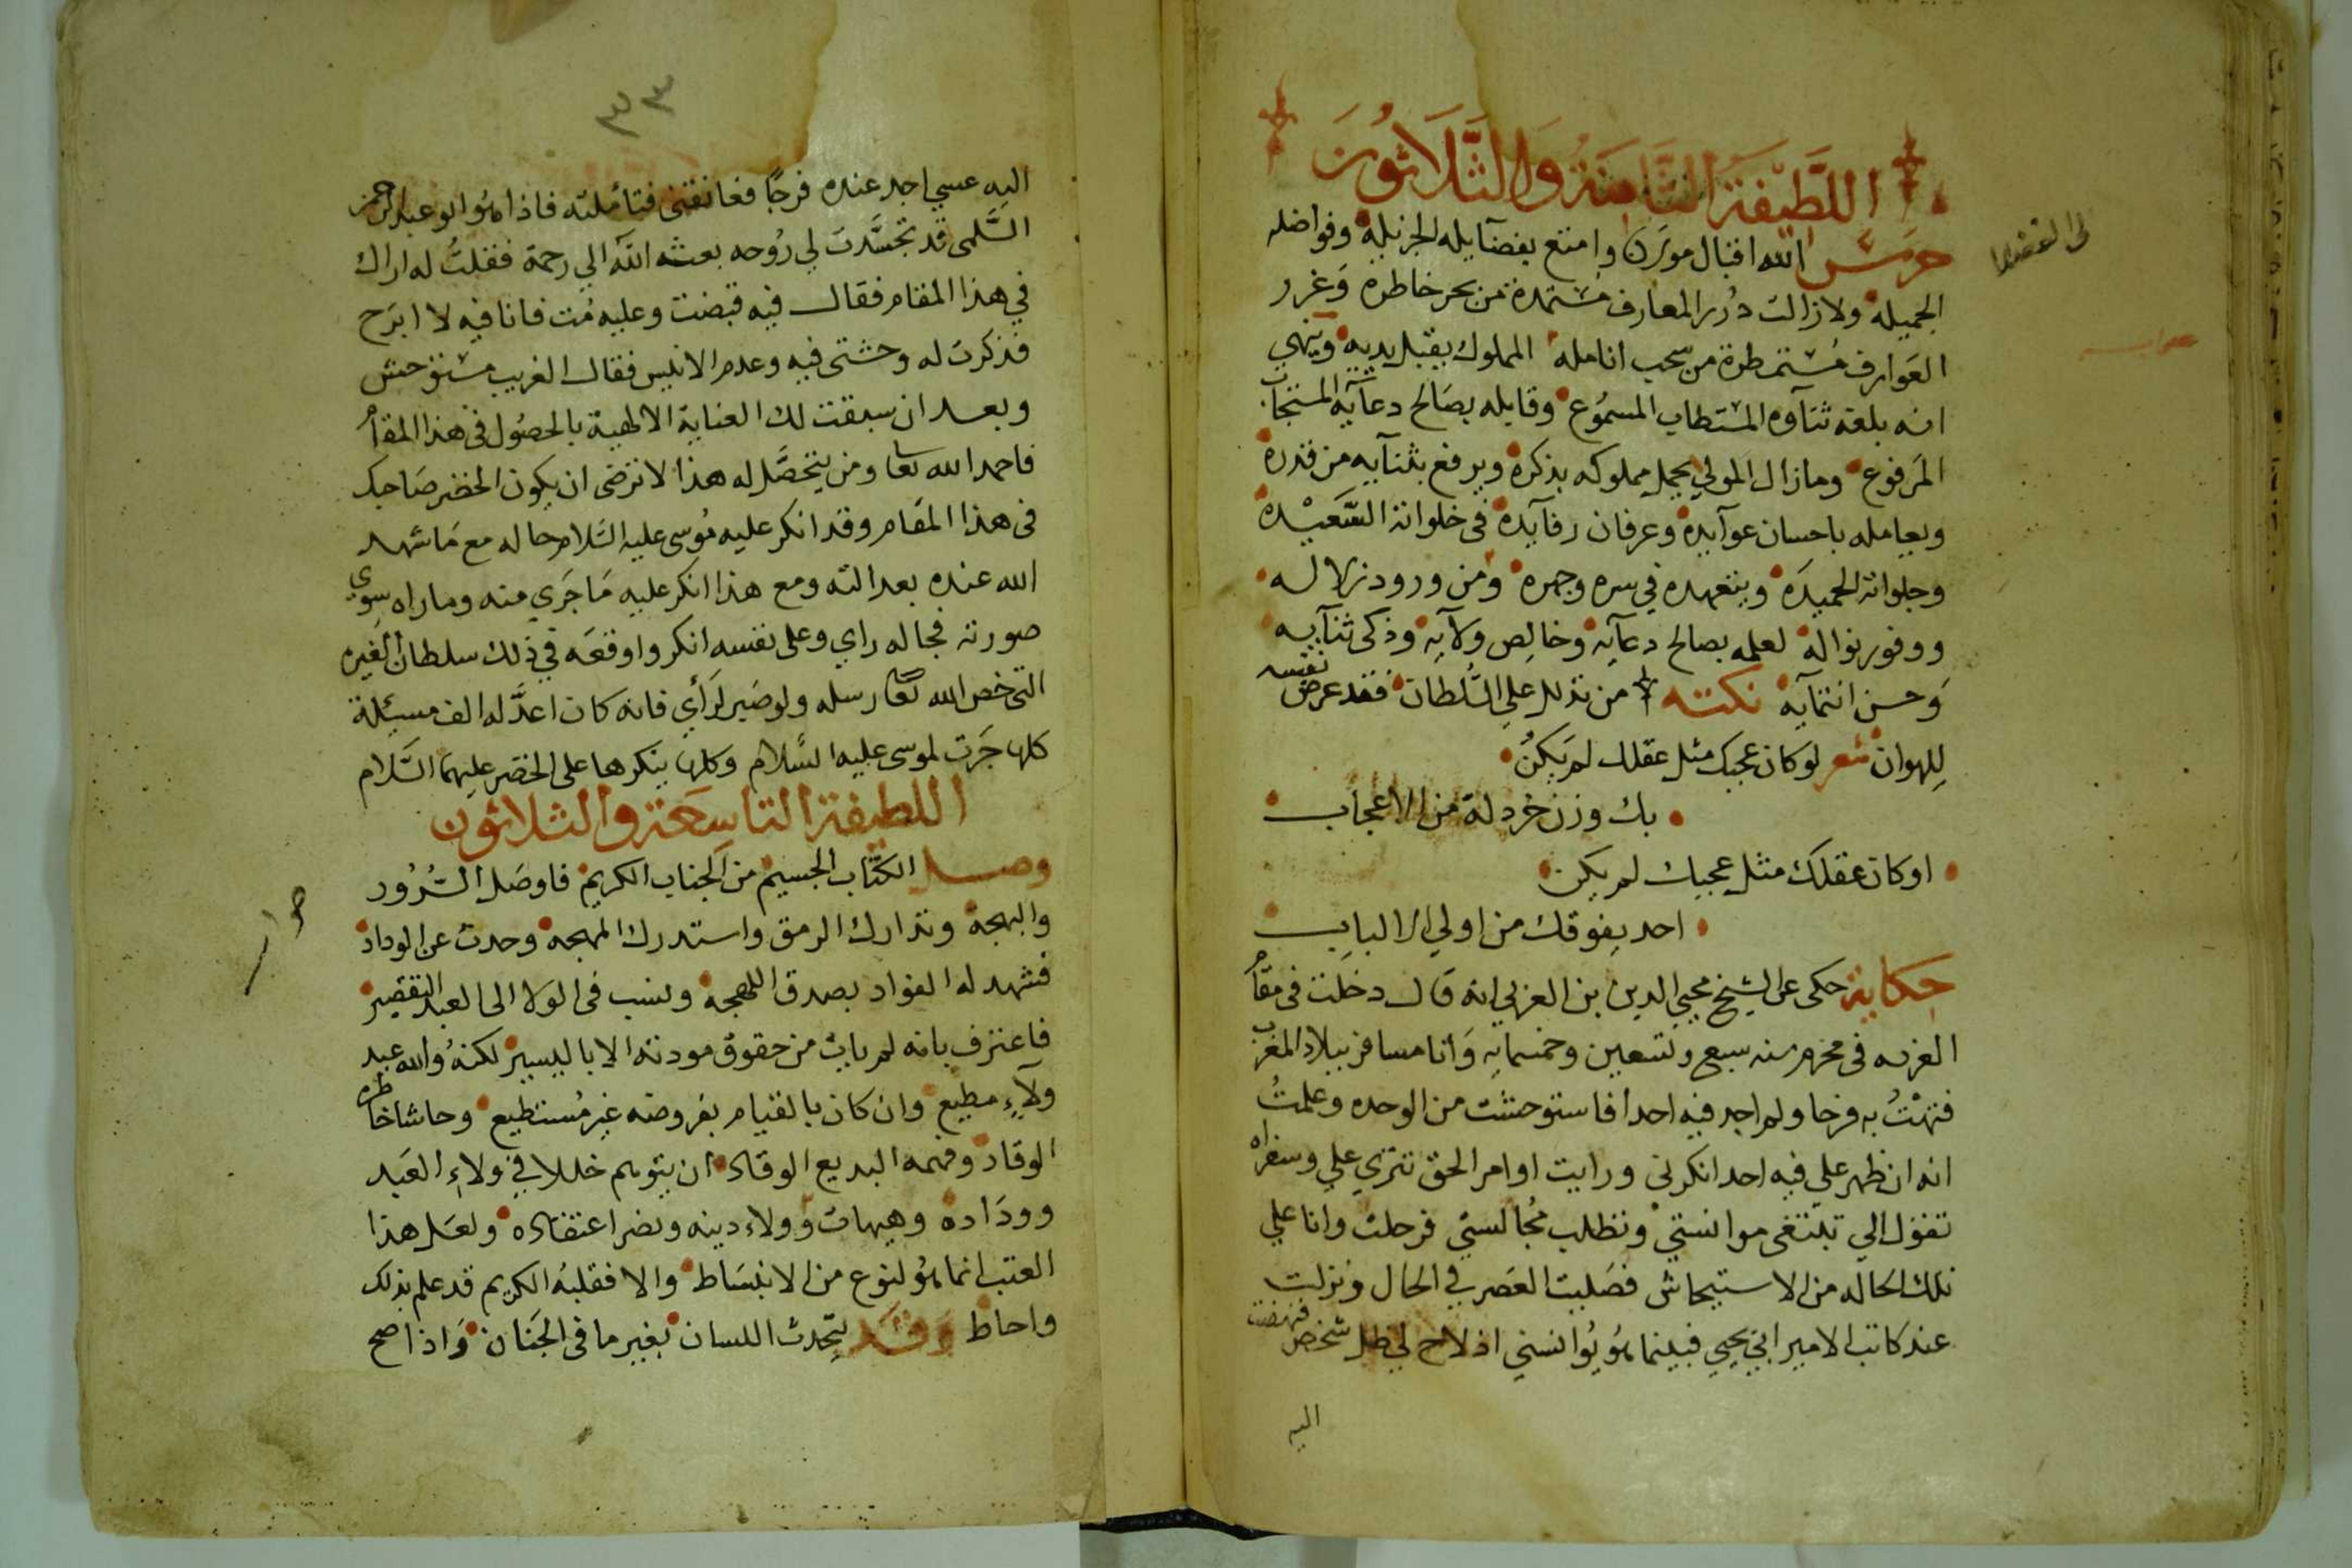 اللطيفة الثامنة والثلاثون
حرس الله اقبال مورن وامتع بفضايله الجزيلة وفواضله
الجميلة ولازالت درر المعارف مستمدة من بحر خاطره وغرر
العوارف مستمطرة من سحب انامله المملوك يقبل يديه وينهي
انه بلغه ثناوه المستطاب المسموع وقابله بصالح دعايه المستجاب
المرفوع ومازال المولي يجمل مملوكه بذكره ويرفع بثنايه من قدره
ويعامله باحسان عوايده وعرفان رفايده في خلواته السعيده
وجلواته الحميده ويتعهده في سره وجهره ومن ورود زلاله
ووفور نواله لعلمه بصالح دعايه وخالص ولايه وذكي ثنايه
وحسن انتمايه نكته من تدلل علي السلطان فقد عرض نفسه
للهوان شعر لوكان عجبك مثل عقلك لم يكن
بك وزن خردلة من الاعجاب
اوكان عقلك مثل عجبك لم يكن
احد يفوقك من اولي الالباب
حكاية حكى عن الشيخ محيي الدين بن العربي انه قال دخلت في مقام
القربه في محرم سنه سبع وتسعين وخمسمايه وانا مسافر ببلاد المغرب
فتهت به فرحا ولم اجد فيه احدا فاستوحشت من الوحده وعلمت
انه ان ظهر علي فيه احد انكرني ورايت اوامر الحق تترى علي وسفراه
تنزل الي تبتغي موانستي وتطلب مجالستي فرحلت وانا علي
تلك الحاله من الاستيحاش فصليت العصر في الحال ونزلت
عند كاتب الامير ابي يحيي فبينما هو يوانسني اذ لاح لي ظل شخص فنهضت
اليه
٣٣
اليه عسي اجد عنده فرجا فعانقني فتاملته فاذا هو ابو عبد الرحمن
السلمى قد تجسدت لي روحه بعثه الله الي رحمة فقلت له اراك
في هذا المقام فقال فيه قبضت وعليه مت فانا فيه لا ابرح
فذكرت له وحشتى فيه وعدم الانيس فقال الغريب مستوحش
وبعد ان سبقت لك العناية الالهية بالحصول في هذا المقام
فاحمد الله تعا ومن يتحصل له هذا لا ترضى ان يكون الخضر صاحبك
فى هذا المقام وقد انكر عليه موسى عليه السلام حاله مع ما شهد
الله عنده بعدالته ومع هذا انكر عليه ما جري منه وما راه سوي
صورته فجاله راي وعلى نفسه انكر واوقعه في ذلك سلطان الغيره
التى خص الله تعا رسله ولو صبر لرأي فانه كان اعد له الف مسيلة
كلها جرت لموسى عليه السلام وكلها ينكرها على الخضر عليهما السلام
اللطيفة التاسعة والثلاثون
وصل الكتاب الجسيم من الجناب الكريم فاوصل السرور
والبهجة وتدارك الرمق واستدرك المهجه وحدث عن الوداد
فشهد له الفواد بصدق اللهجه ونسب فى الولا الى العبد التقصير
فاعترف بانه لم يات من حقوق مودته الا باليسير لكنه والله عبد
ولآء مطيع وان كان بالقيام بفروضه غير مستطيع وحاشا خاطره
الوقاد وفهمه البديع الوقاد ان يتوهم خللا في ولاء العبد
ووداده وهيهات وولاءدينه ونضر اعتقاده ولعل هذا
العتب انما هو لنوع من الانبساط والا فقلبه الكريم قد علم بذلك
واحاط وقد يتحدث اللسان بغير ما فى الجنان واذا صح